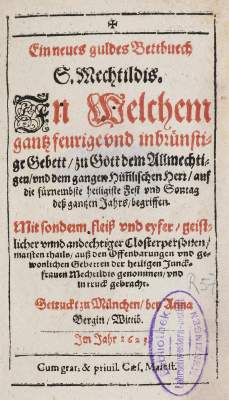 Ein neues guldes Bettbuech
S. Mechtildis.
In Welchem
gantz feurige vnd inbrünsti-
ge Gebett / zu Gott dem Allmechti-
gen / vnd dem gantzen Himlischen Heer / auf
die fürnembste heiligiste Fest vnd Sontag
deß gantzen Jahrs / begriffen.
Mit sonderm fleiß vnd eyfer / geist-
licher vnnd andechtiger Closterpersonen /
maisten thails / auß den Offenbarungen vnd ge-
wonlichen Gebetten der heiligen Junck-
frauen Mechtildis genommen / vnd
in truck gebracht.
Getruckt zu München / bey Anna
Bergin / Wittib.
Im Jahr
Cum grat. & priuil. Cæs. Maiest.
Bibliothek